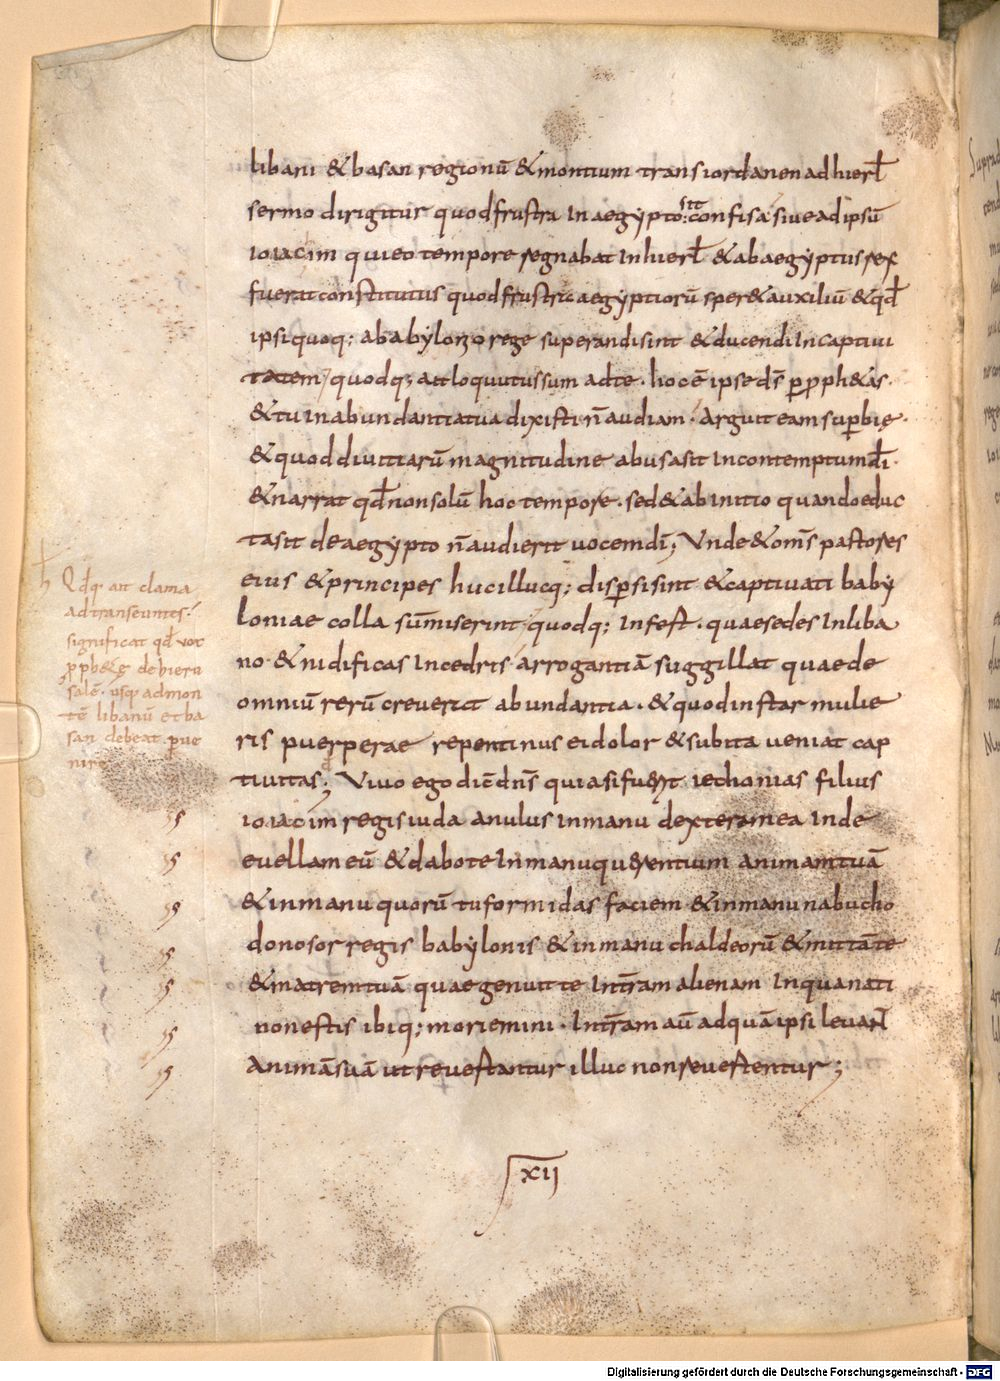 libani & basan regionū & montium transiordanen ad hierł
sermo dirigitur quod frustra in aegypto sit confisa siue ad ipsū
ioiacim qui eo tempore regnabat in hierł & ab aegyptiis rex
fuerat constitutus quod frustra aegyptiorū sper& auxiliū & qđ
ipsi quoq; a babylonio rege superandi sint & ducendi in captiui
tatem, quodq; ait loquutus sum ad te. hoc ē ipse dēs p pph&as.
& tu in abundantia tua dixisti n̄ audiam. Arguit eam supbię.
& quod diuitiarū magnitudine abusa sit in contemptum dī.
& narrat qđ non solū hoc tempore. sed & ab initio quando educ
ta sit de aegypto n̄ audierit uocem dī; Vnde & om̄s pastores
eius & principes huc illucq; dispsi sint & captiuati baby
loniae colla sūmiserint quodq; infest. quae sedes in liba
no & nidificas in cedris arrogantiā suggillat quae de
omniū rerū creuerit abundantia. & quod instar mulie
ris puerperae repentinus ei dolor & subita ueniat cap
tiuitas; Viuo ego dic̄ dn̄s quia si fuerit iechonias filius
ioiacim regis iuda anulus in manu dextera mea inde
euellam eū & dabo te in manu querentium animam tuā
& in manu quorū tu formidas faciem & in manu nabucho
donosor regis babylonis & in manu chaldeorū & mittā te
& matrem tuā quae genuit te in t̄ram alienam in qua nati
non estis ibiq; moriemini. In t̄ram aū ad quā ipsi leuant
animā suā ut reuertantur illuc non reuertentur;
Qdq ait clama
ad transeuntes.
significat qđ uox
pph&ę de hieru
salē. usq ad mon
tē libanū et ba
san debeat pue
nire
XII
Digitalisierung gefördert durch die Deutsche Forschungsgemeinschaft - DFG